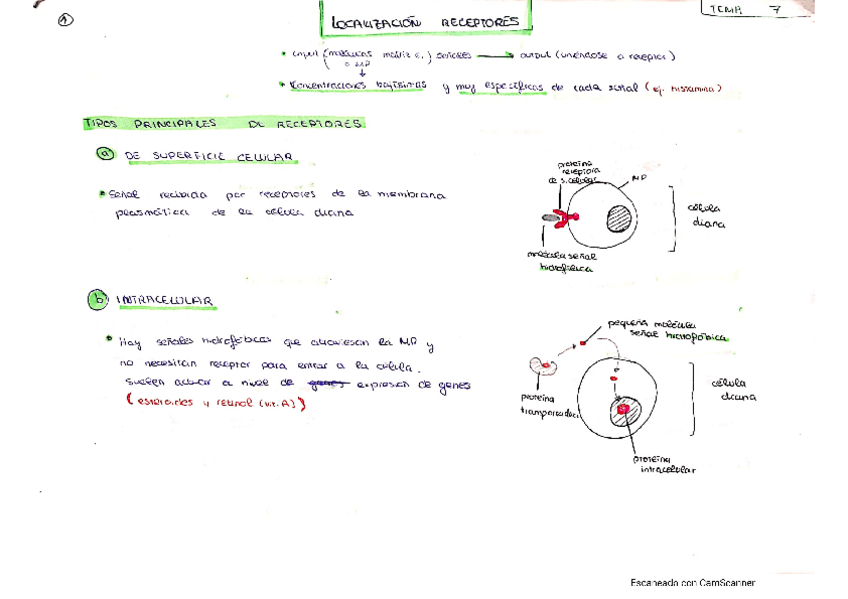 1
LOCALIZACIÓN RECEPTORES
TEMA 7
input (moléculas matriz e.) señales → output (uniéndose a receptor)
o MP
↓
Concentraciones bajísimas y muy específicas de cada señal (ej. histamina)
TIPOS PRINCIPALES DE RECEPTORES
a DE SUPERFICIE CELULAR
Señal recibida por receptores de la membrana
plasmática de la célula diana
proteína
receptora
de s. celular
MP
célula
diana
molécula señal
hidrofílica
b INTRACELULAR
Hay señales hidrofóbicas que atraviesan la MP y
no necesitan receptor para entrar a la célula.
Suelen actuar a nivel de genes expresión de genes
(esteroides y retinol (vit. A))
pequeña molécula
señal hidrofóbica
proteína
transportadora
célula
diana
proteína
intracelular
Escaneado con CamScanner